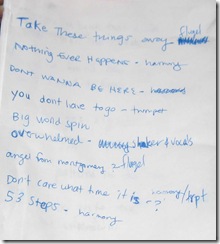 Take These things away flugel
Nothing Ever Happens - harmony
DONT WANNA BE HERE -
you dont love to go - trumpet
Big world spin
overwhelmed - shaker & vocals
angel from montgomery 2 flugel
Don't care what time it is - harmony/trpt ?
53 Steps - harmony